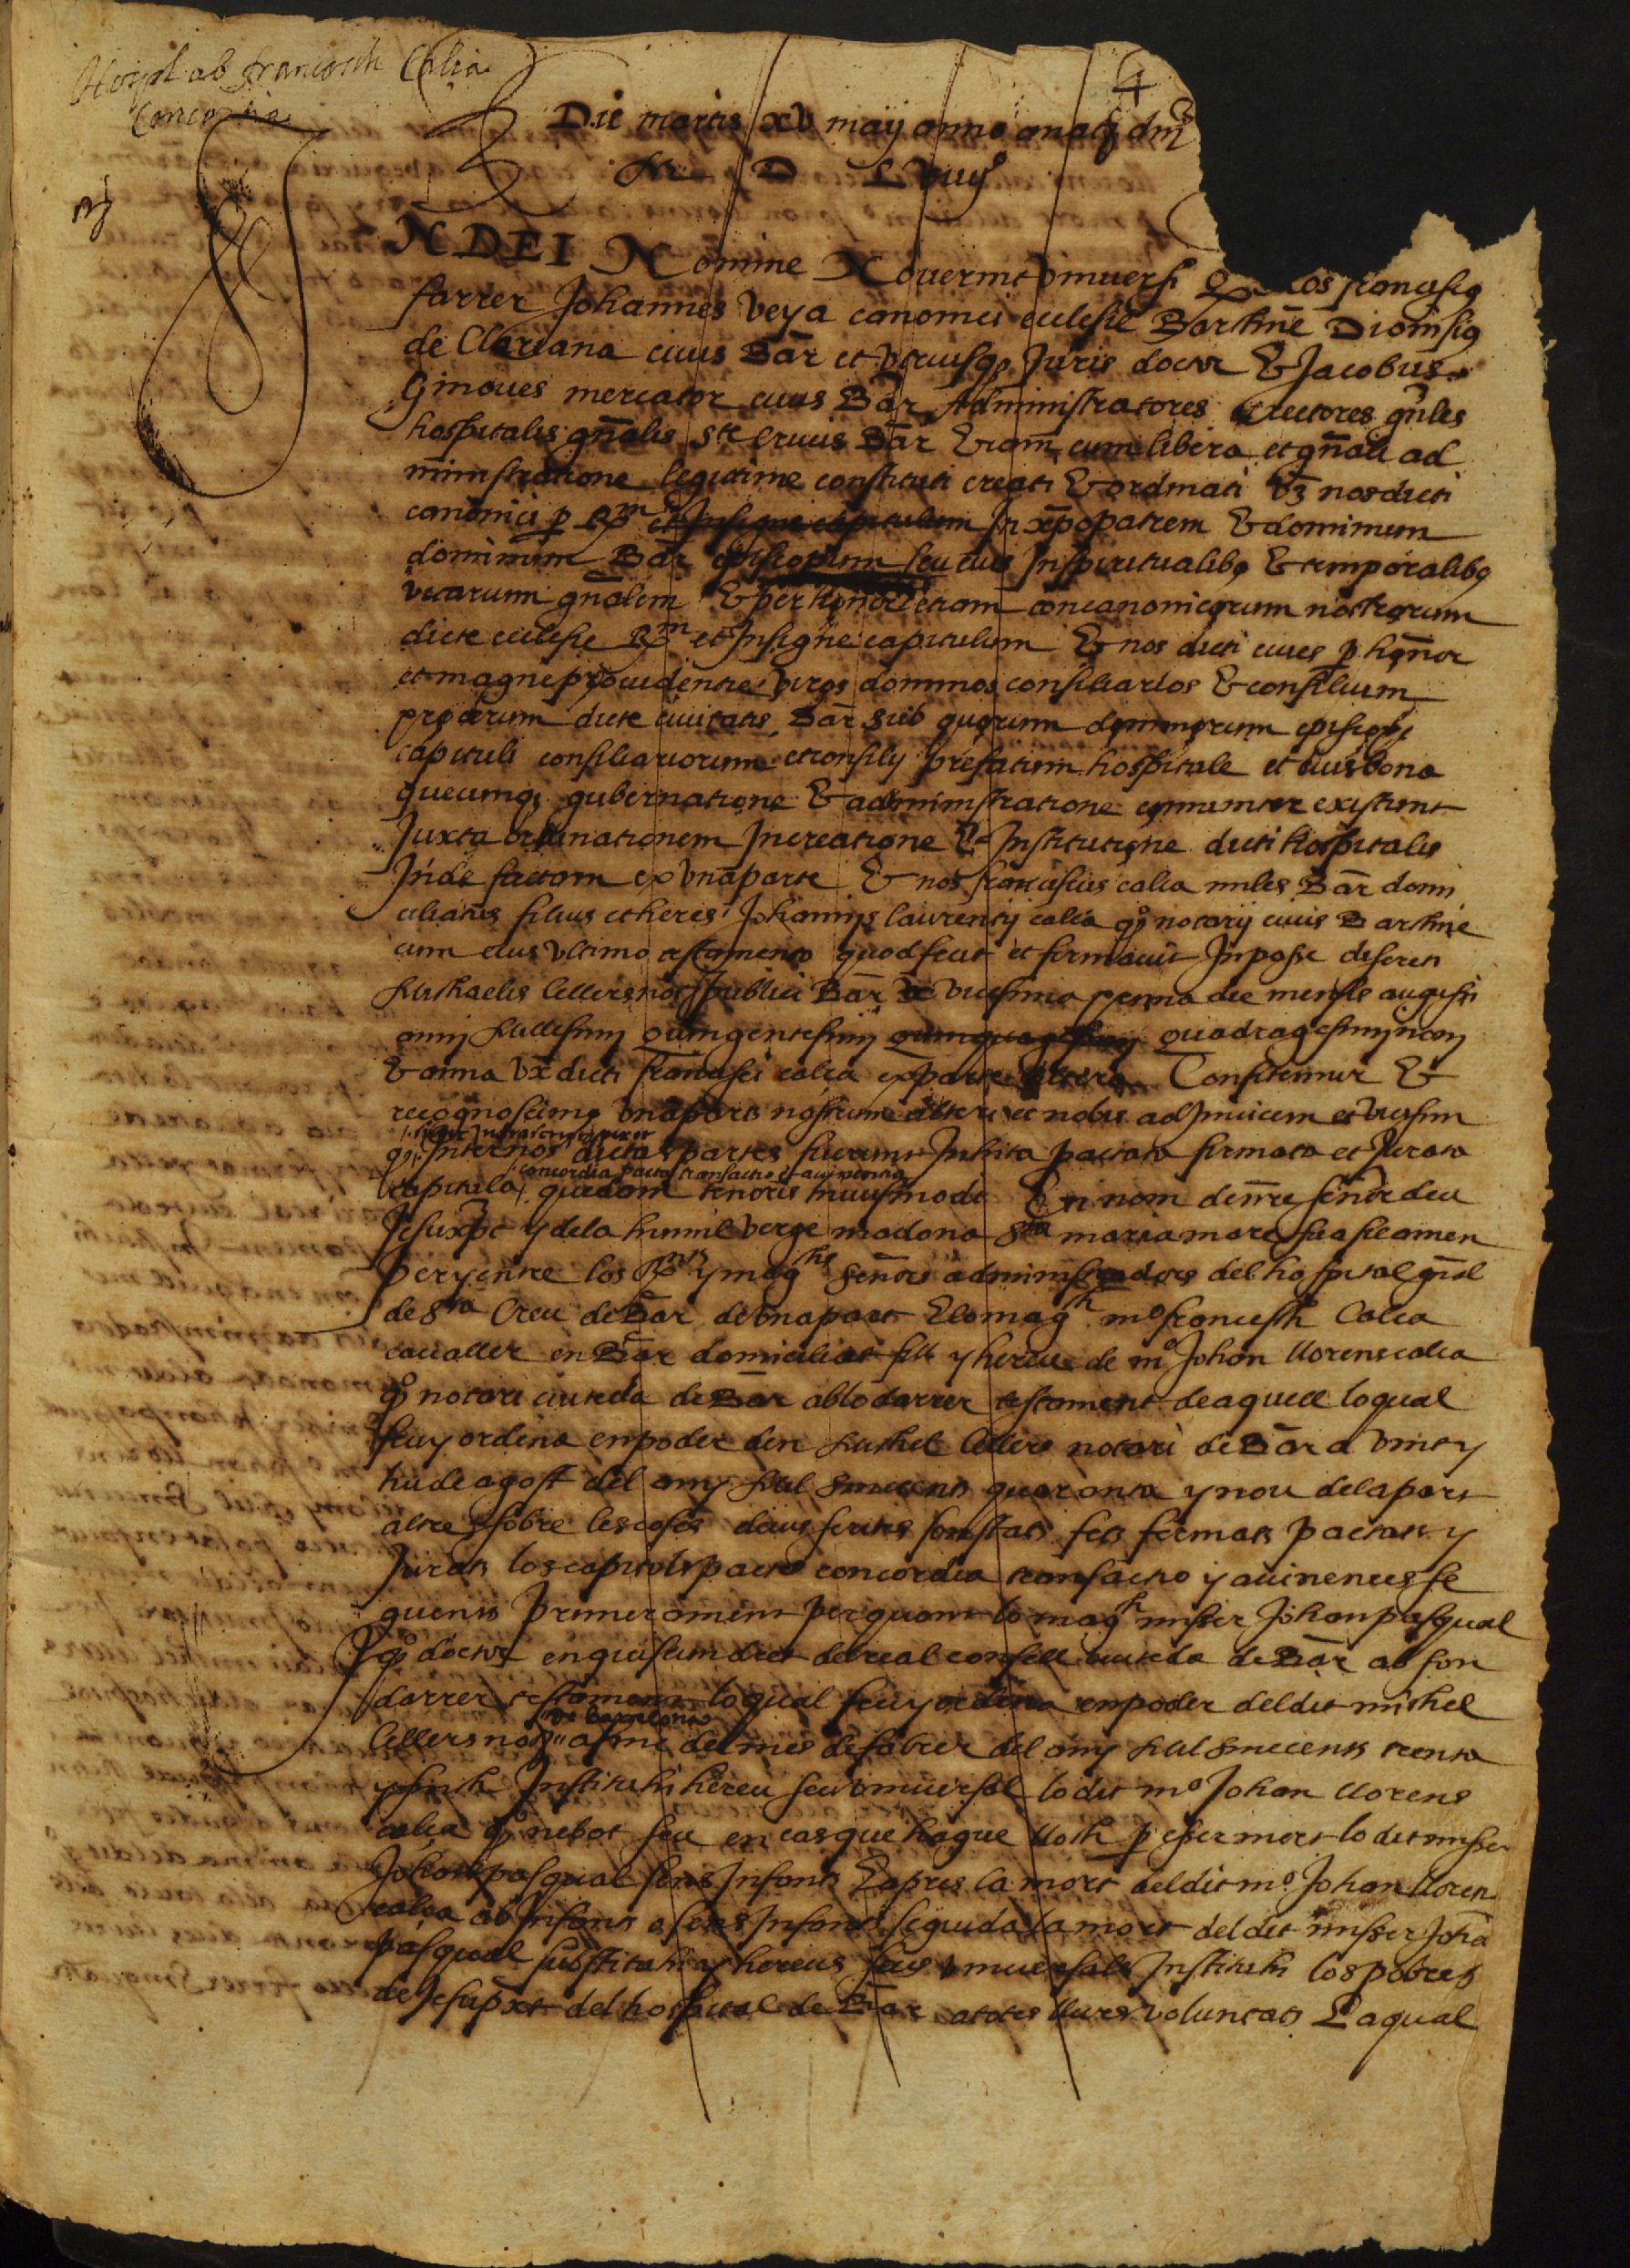 Hospl ab francesch Calça
Concordia
4
Die martis xv maij anno a natte dni
M D L viiijº
IN DEI Nomine Noverint universi q nos franciscg
farrer Johannes veya canonici ecclesie Barchine Dionisig
de Clariana civis Bar et utriusqz Juris doctor & Jacobus
Ginoves mercator civis Bar Administratores et rectores gnles
hospitalis gnalis ste Crucis Bar & iam cum libera et gnali ad
ministratione legitime constituti creati & ordinati vz nos dicti
canonici p Rm et Insigne capitulum In xpo patrem & dominum
dominum Bar episcopum seu eius In spiritualibg & temporalibg
vicarium gnalem & per honor etiam concanonicorum nostrorum
dicte ecclesie Rm et Insigne capitulum & nos dicti cives p honor
et magne providentie viros dominos consiliarios & consilium
procerum dicte civitatis Bar sub quorum dominorum episcopi
capituli consiliariorum et consilij prefatum hospitale et eius bona
quecumqz gubernatione & administratione comuniter existunt
Juxta ordinationem In creatione & Institutione dicti hospitalis
Inde factam ex una parte & nos franciscus calça miles Bar domi
ciliatus filius et heres Johannis laurentij calça qo notarij civis Barchine
cum eius ultimo testamento quod fecit et firmavit In posse discreti
Michaelis Cellers not publici Bar vicesima prima die mensis augusti
anni Millesimi quingentesimi quinquagesimi quadragesimi noni
& anna vx dicti francisci calça ex parte altera Confitemur &
recognoscimg una pars nostrum alteri et nobis ad Invicem et vicissim
qz Inter nos dictas partes fuerunt Inhita pactata firmata et Jurata
concordia pacta transactio et avinentia
capitula quedam tenoris huiusmodi En nom de nre senor deu
Jesuxpt y dela humil verge madona Sta maria mare sua sie amen
Per y entre los Rnts y magchs senors administradors del hospital gnl
de Sta Creu de Bar de una part E lo magch mº francesch Calça
cavaller en Bar domiciliat fill y hereu de mº Johan llorens calça
qo notari ciutada de Bar ab lo darrer testament de aquell lo qual
feu y ordina en poder den Michel Cellers notari de Bar a vint y
hu de agost del any Mil Sinccents quaranta y nou dela part
altre sobre les coses devus scrites son stats fets fermats pactats y
Jurats los capitols pacte concordia transactio y avinences se
guents Primerament per quant lo magch misser Johan pasqual
qo doctor en quiscun dret del real consell ciutada de Bar ab son
darrer testament lo qual feu y ordina en poder del dit michel
Cellers not de barcelona a sinc del mes de febrer del any Mil Sinccents trenta
y sinch Instituhi hereu seu universal lo dit mº Johan llorens
calça qo nebot seu en cas que hague lloch p esser mort lo dit misser
Johan pasqual sens Infants E apres la mort del dit mº Johan lloren
calça ab Infants o sens Infants seguida la mort del dit misser Joha
pasqual substituhi y hereus seus universals Instituhi los pobres
de Jesuxpt del hospital de Bar a totes llurs voluntats E a qual